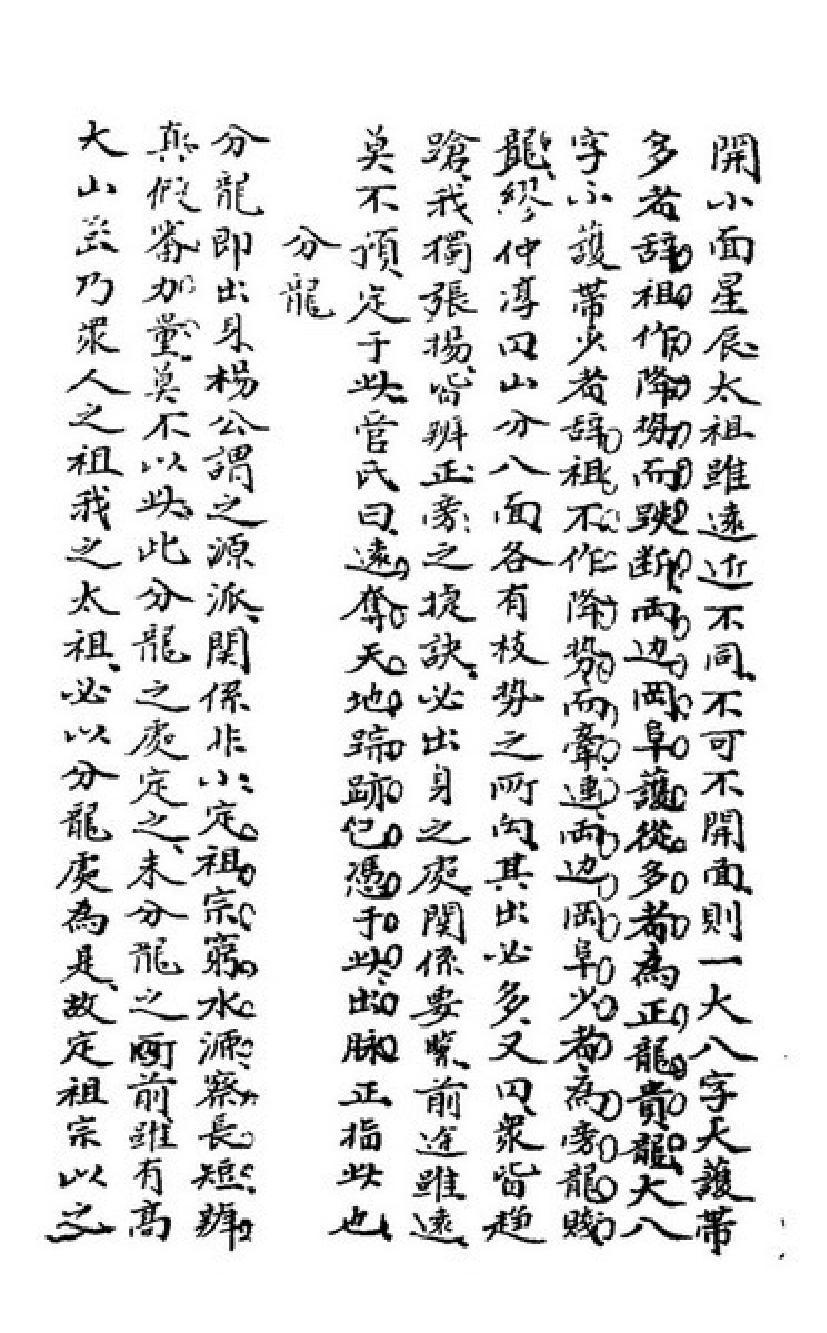 開小面星辰太祖雖遠近不同不可不開面則一大八字天護帶
多者辞祖作降勢而跌断両边岡阜護從多者為正龍貴龍大八
字小護帶少者辞祖不作降勢而牽連両边岡阜少者為旁龍賤
龍繆仲淳曰山分八面各有枝势之所向其出必多又曰眾皆趋
蹌我獨張揚皆辨正旁之捷訣必出身之處関係要緊前途雖遠
莫不預定于此管氏曰遠奪天地踪跡已憑于此出脉正指此也
分龍
分龍即出身楊公謂之源派関係非小定祖宗窮水源察長短辨
真假審加量莫不以此此分龍之處定之未分龍之前雖有高
大山巒乃眾人之祖我之太祖必以分龍處為是故定祖宗以之